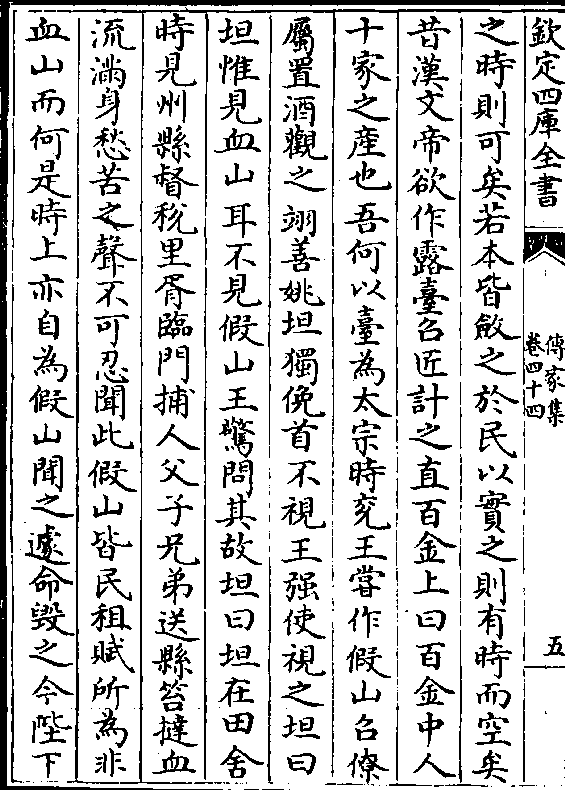 欽定四庫全書
傳家集
卷四十四
五
之時則可矣若本皆斂之於民以實之則有時而空矣
昔漢文帝欲作露臺召匠計之直百金上曰百金中人
十家之產也吾何以臺為太宗時兖王嘗作假山召僚
屬置酒觀之翊善姚坦獨俛首不視王强使視之坦曰
坦惟見血山耳不見假山王驚問其故坦曰坦在田舍
時見州縣督稅里胥臨門捕人父子兄弟送縣笞撻血
流滿身愁苦之聲不可忍聞此假山皆民租賦所為非
血山而何是時上亦自為假山聞之遽命毀之今陛下